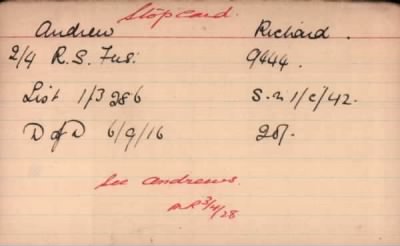 Stopcard.
Andrew Richard.
2/4 R. S. Fus: 9444.
List 1/3286 S. 2 1/c/42.
D of D 6/9/16 20/-
See Andrews.
3/4/28